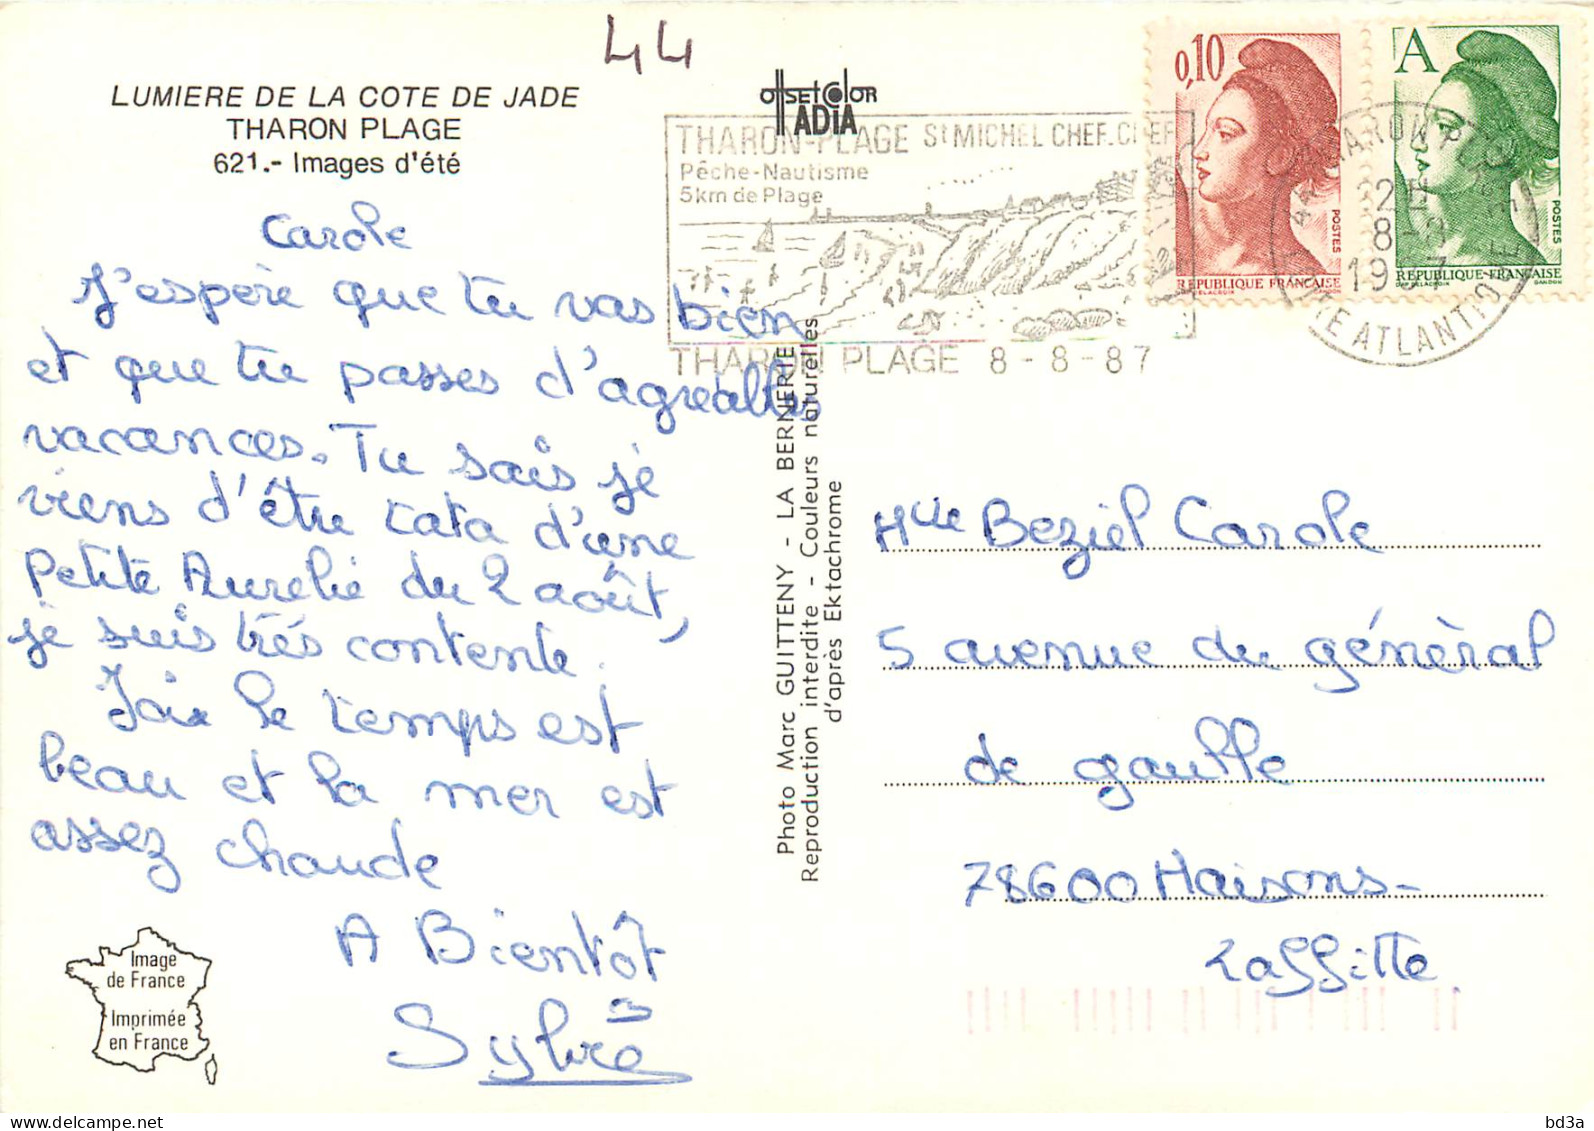 44
LUMIERE DE LA COTE DE JADE
THARON PLAGE
621.- Images d'été
Carole
J'espère que tu vas bien
et que tu passes d'agreables
vacances. Tu sais je
viens d'être tata d'une
petite Aurelie du 2 août,
je suis très contente.
Ici le temps est
beau et la mer est
assez chaude
A Bientôt
Sylvie
Image
de France
Imprimée
en France
offset color
ADIA
THARON-PLAGE St MICHEL CHEF.CHEF
Pêche-Nautisme
5km de Plage
THARON PLAGE 8-8-87
0,10
POSTES
REPUBLIQUE FRANÇAISE
DELACROIX GANDON
A
POSTES
REPUBLIQUE FRANÇAISE
DAP DELACROIX GANDON
44 THARON PLAGE
22H
8-8
1987
LOIRE ATLANTIQUE
Photo Marc GUITTENY - LA BERNERIE
Reproduction interdite - Couleurs naturelles
d'après Ektachrome
Mlle Beziel Carole
5 avenue du général
de gaulle
78600 Maisons-
Laffitte
bd3a